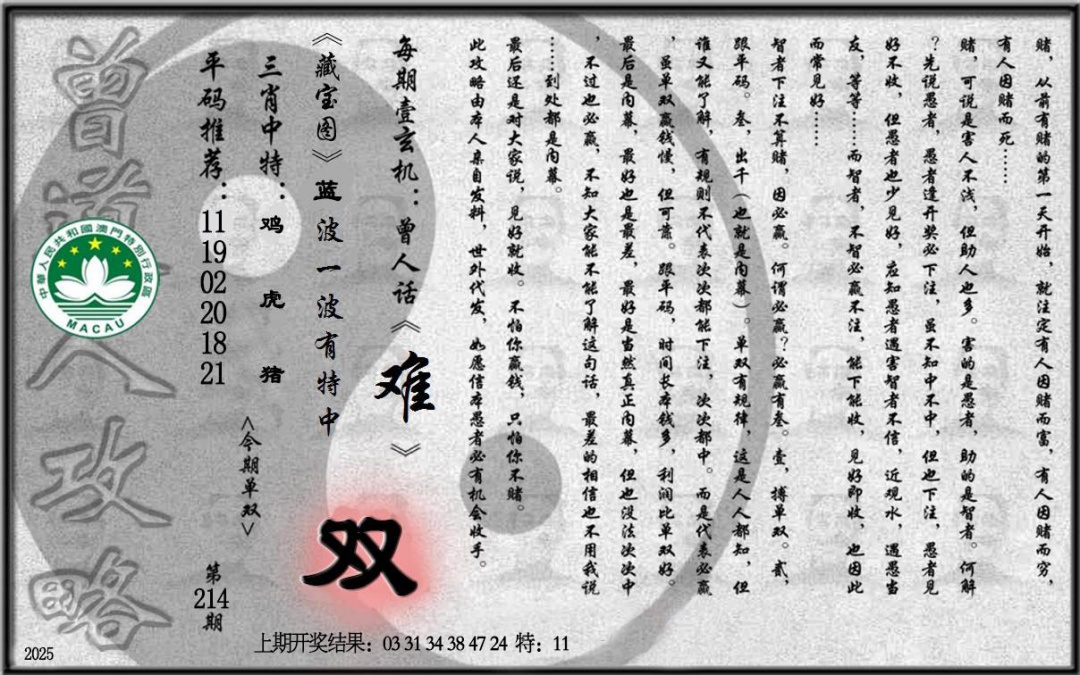 赌，从前有赌的第一天开始，就注定有人因赌而富，有人因赌而穷，
有人因赌而死……
赌，可说是害人不浅，但助人也多。害的是愚者，助的是智者。何解
？先说愚者，愚者逢开奖必下注，虽不知中不中，但也下注，愚者见
好不收，但愚者也少见好，应知愚者遇害智者不信，近观水，遇愚当
友，等等……而智者，不智必赢不注，能下能收，见好即收，也因此
而常见好……
智者下注不算赌，因必赢。何谓必赢？必赢有叁。壹，搏单双。贰，
跟平码。叁，出千（也就是内幕）。单双有规律，这是人人都知，但
谁又能了解，有规则不代表次次都能下注，次次都中。而是代表必赢
，虽单双赢钱慢，但可靠。跟平码，时间长本钱多，利润比单双好。
最后是内幕，最好也是最差，最好是当然真正内幕，但也没法次次中
，不过也必赢，不知大家能不能了解这句话，最差的相信也不用我说
……到处都是内幕。
最后还是对大家说，见好就收。不怕你赢钱，只怕你不赌。
此攻略由本人亲自发料，世外代发，如愿信本愚者必有机会收手。
每期壹玄机：曾人话《难》
《藏宝图》蓝波一波有特中
双
三肖中特：鸡虎猪
<今期单双>
平码推荐：11 19 02 20 18 21
第214期
曾道人攻略
中華人民共和國澳門特別行政區
MACAU
上期开奖结果：03 31 34 38 47 24 特：11
2025